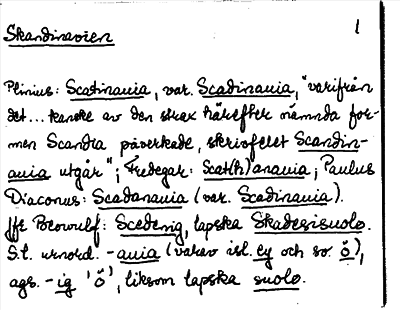 Skandinavien 1
Plinius: Scatinauia, var. Scadinauia, "varifrån
det... kanske av den strax härefter nämnda for-
men Scandia påverkade, skrivfelet Scandin-
auia utgår"; Fredegar: Scat(h)anauia; Paulus
Diaconus: Scadanauia (var. Scadinauia).
Jfr Beowulf: Scedenig, lapska Skadesisuolo.
S.l. urnord. -auia (varav isl. ey och sv. ö),
ags. -ig 'ö', liksom lapska suolo.